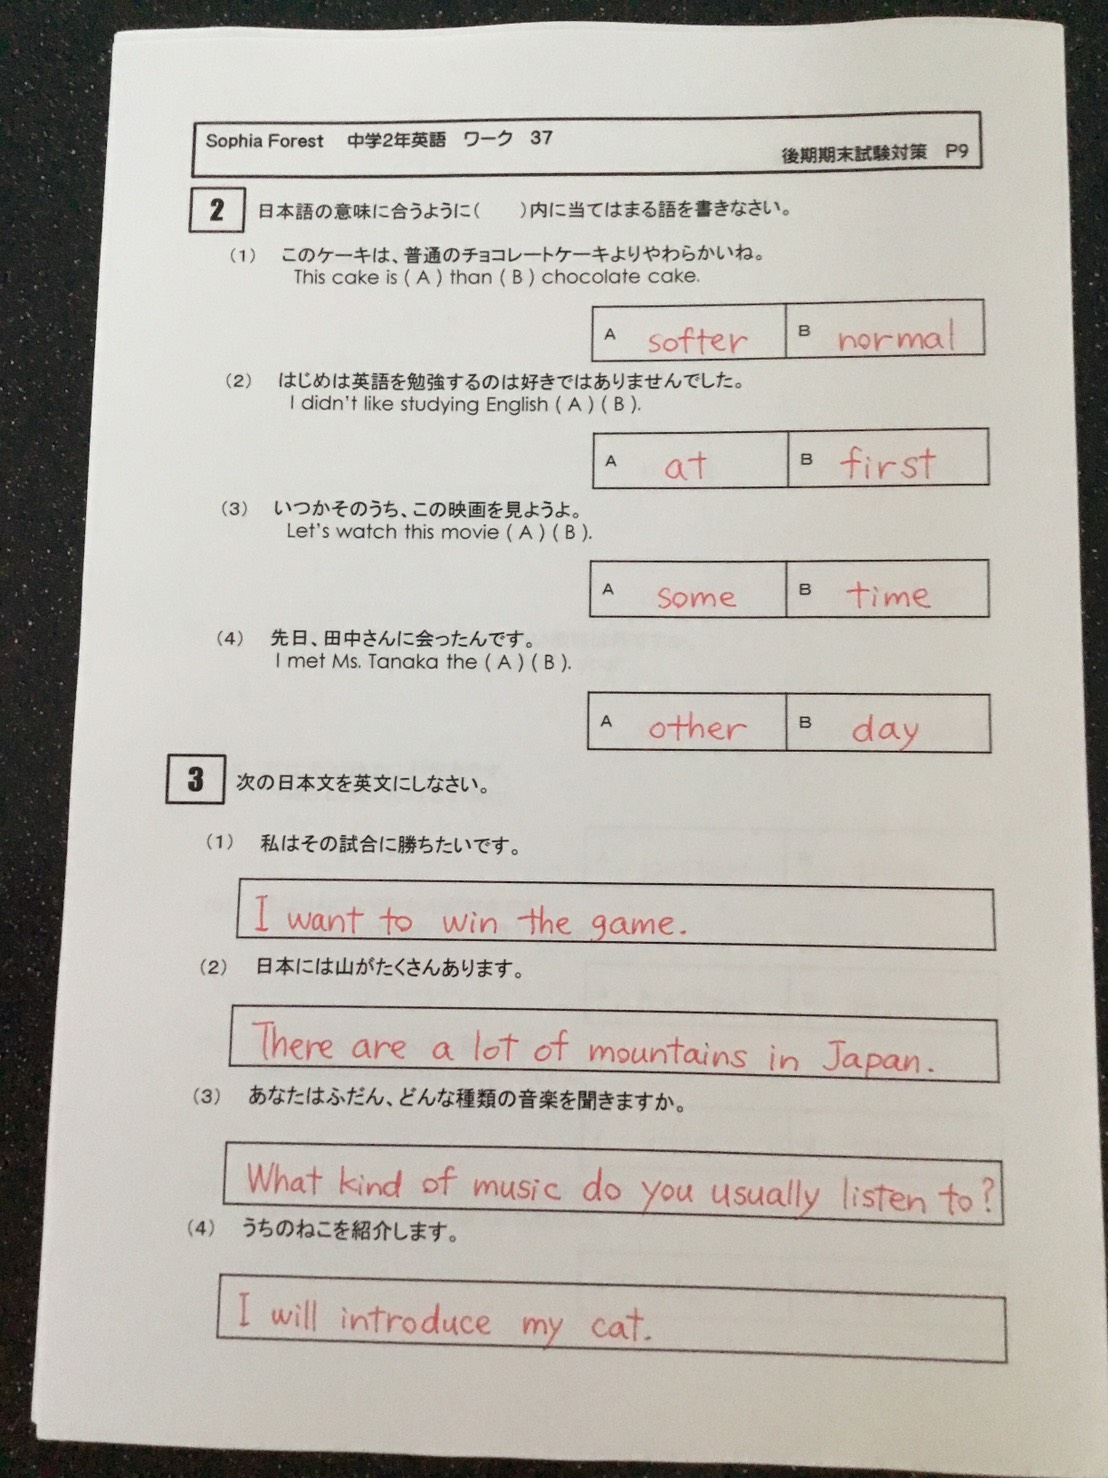 Sophia Forest 中学2年英語 ワーク 37
後期期末試験対策 P9
2 日本語の意味に合うように( )内に当てはまる語を書きなさい。
(1) このケーキは、普通のチョコレートケーキよりやわらかいね。
This cake is ( A ) than ( B ) chocolate cake.
A softer B normal
(2) はじめは英語を勉強するのは好きではありませんでした。
I didn't like studying English ( A ) ( B ).
A at B first
(3) いつかそのうち、この映画を見ようよ。
Let's watch this movie ( A ) ( B ).
A some B time
(4) 先日、田中さんに会ったんです。
I met Ms. Tanaka the ( A ) ( B ).
A other B day
3 次の日本文を英文にしなさい。
(1) 私はその試合に勝ちたいです。
I want to win the game.
(2) 日本には山がたくさんあります。
There are a lot of mountains in Japan.
(3) あなたはふだん、どんな種類の音楽を聞きますか。
What kind of music do you usually listen to?
(4) うちのねこを紹介します。
I will introduce my cat.